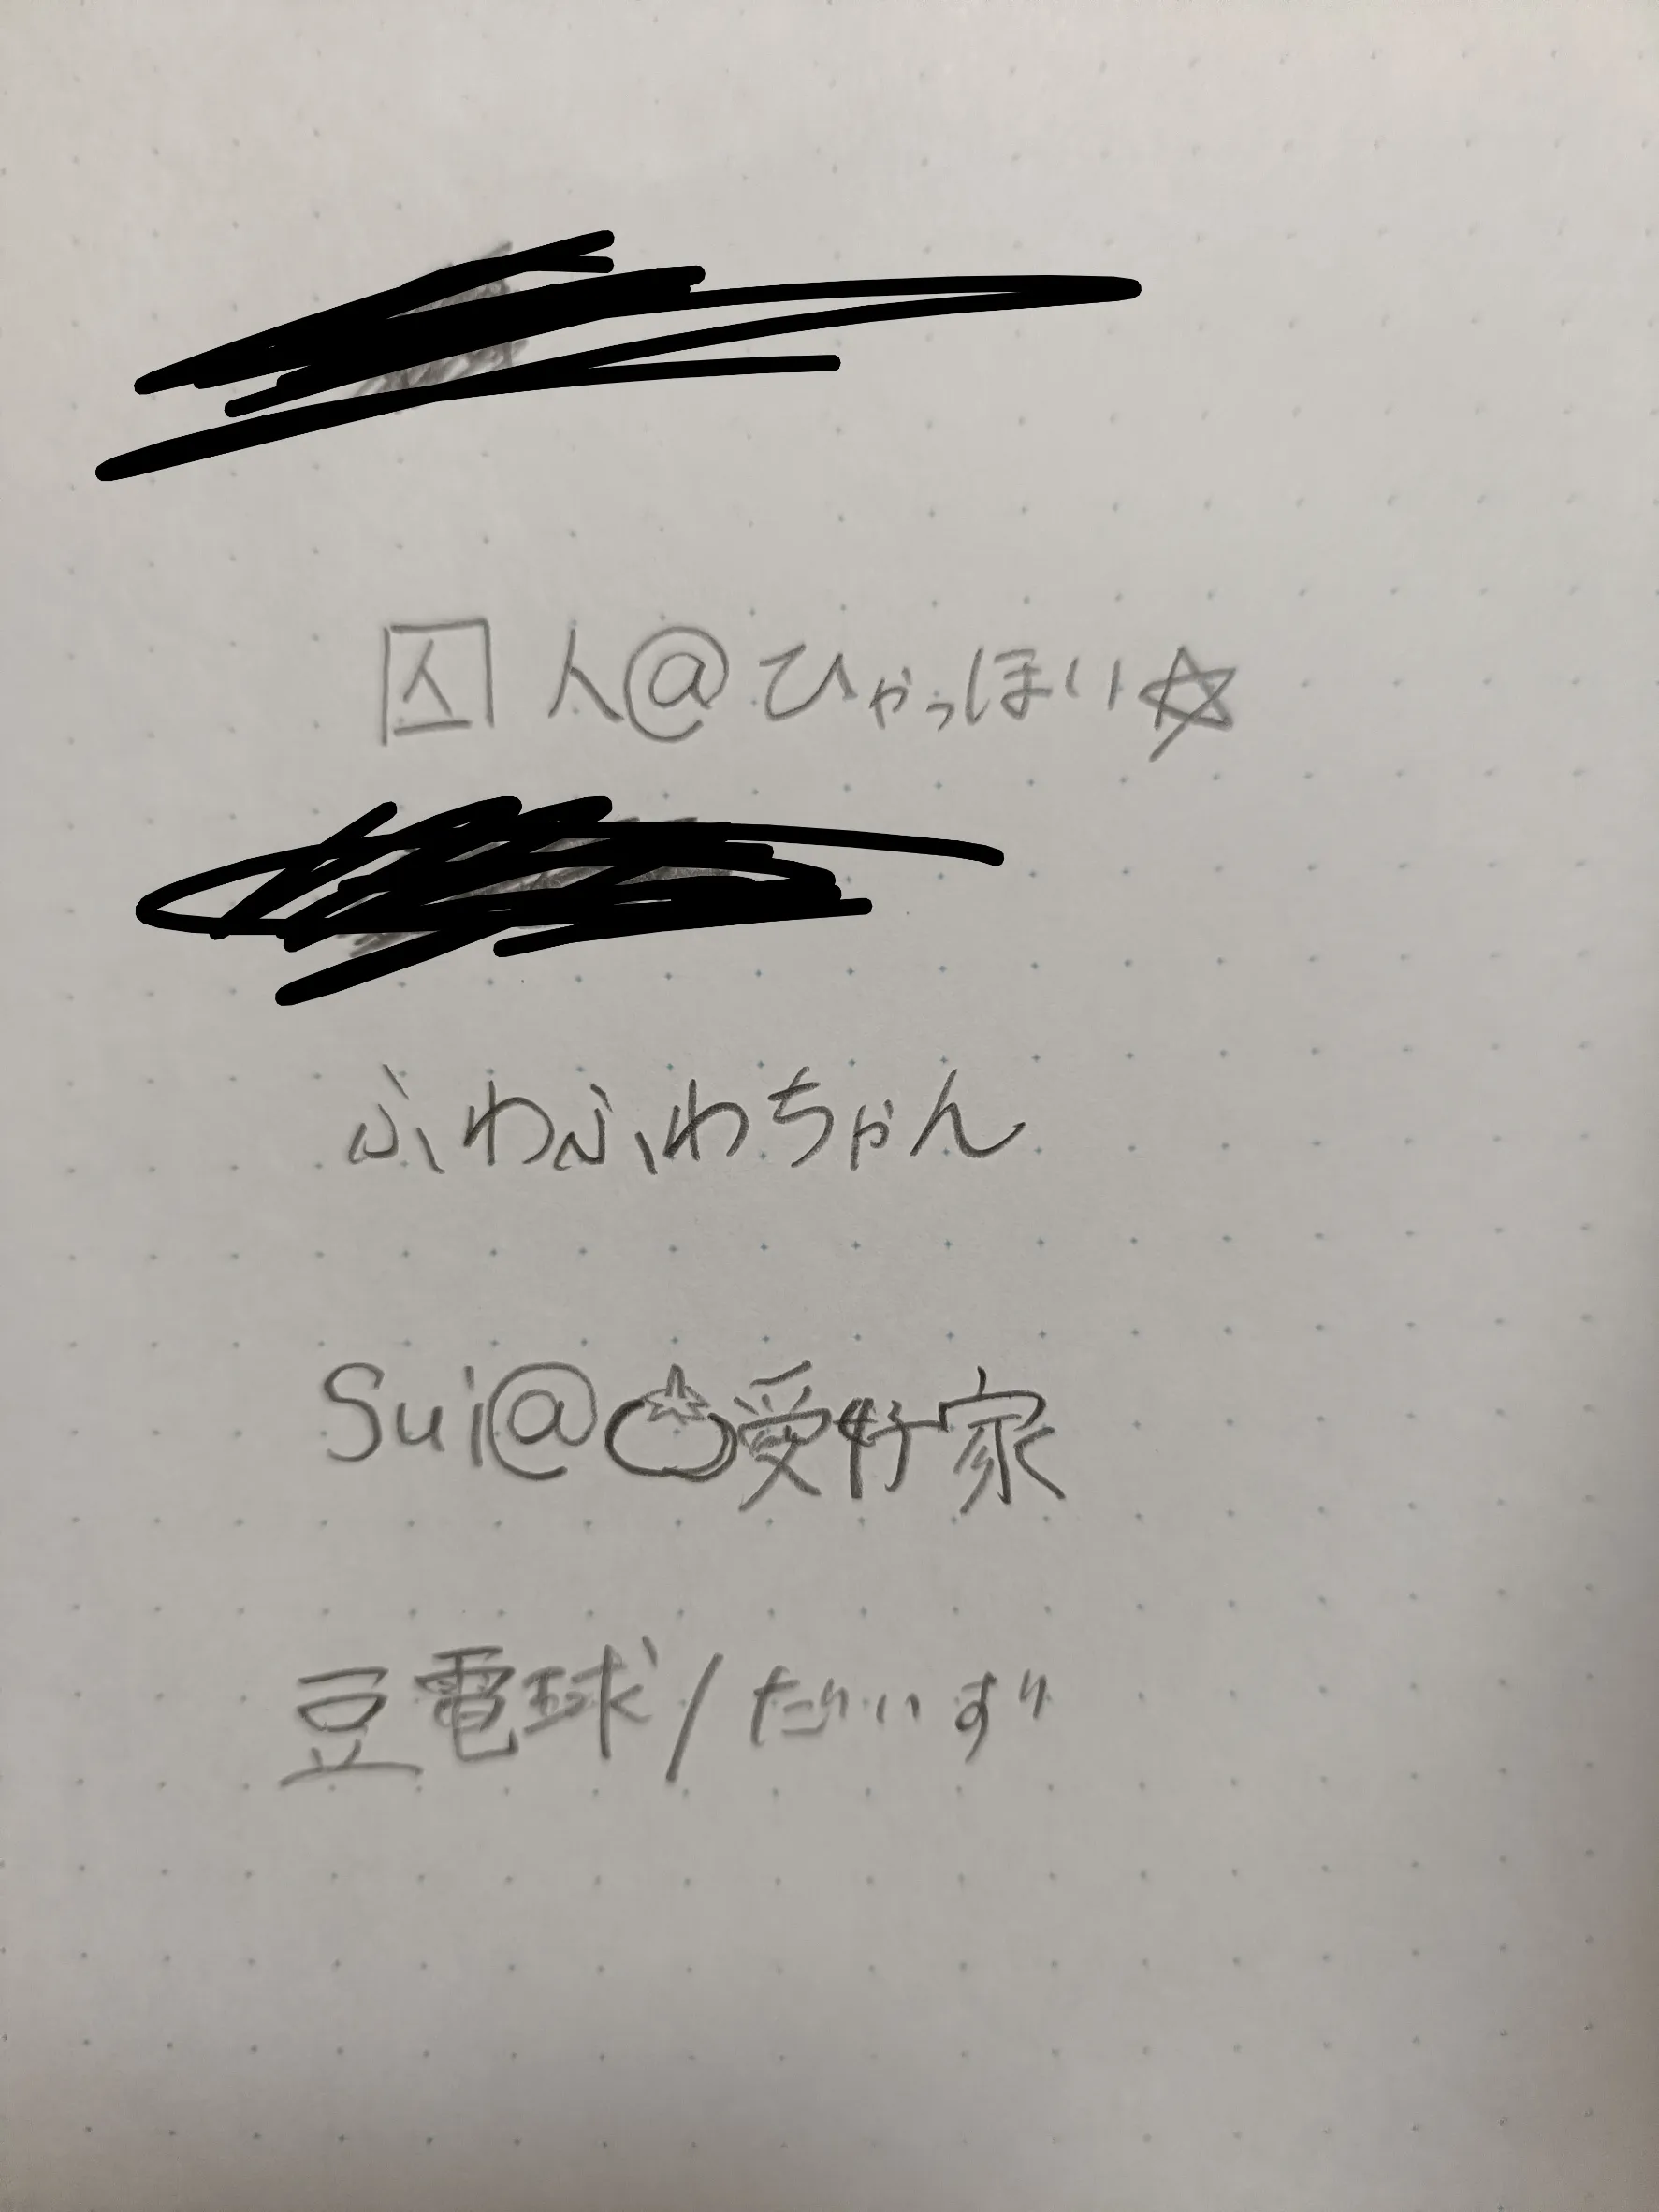 囚人@ひゃっほい☆
ふわふわちゃん
Sui@🍅愛好家
豆電球/だいず